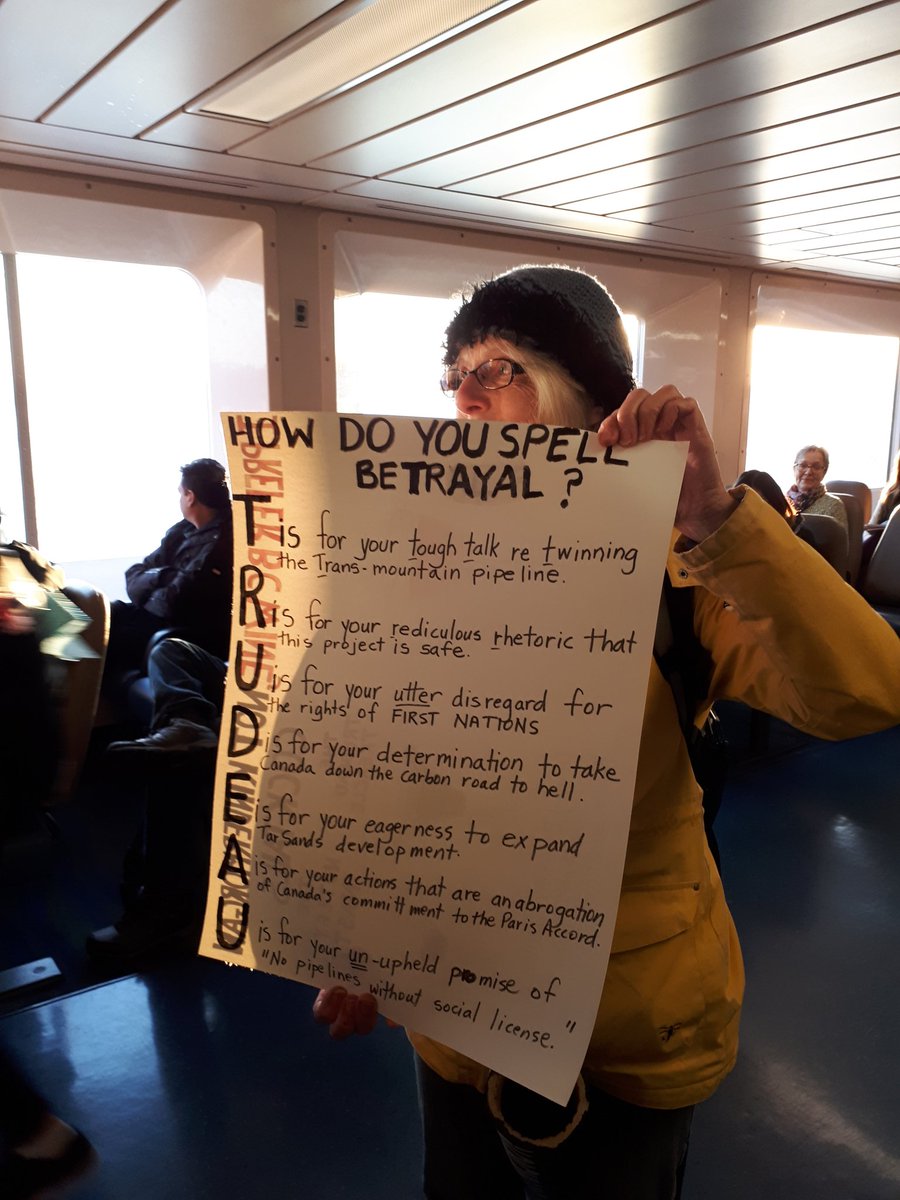 HOW DO YOU SPELL
BETRAYAL?
T is for your tough talk re twinning
the Trans-mountain pipeline.
R is for your rediculous rhetoric that
this project is safe.
U is for your utter disregard for
the rights of FIRST NATIONS
D is for your determination to take
Canada down the carbon road to hell.
E is for your eagerness to expand
Tar Sands development.
A is for your actions that are an abrogation
of Canada's committment to the Paris Accord.
U is for your un-upheld promise of
"No pipelines without social license."